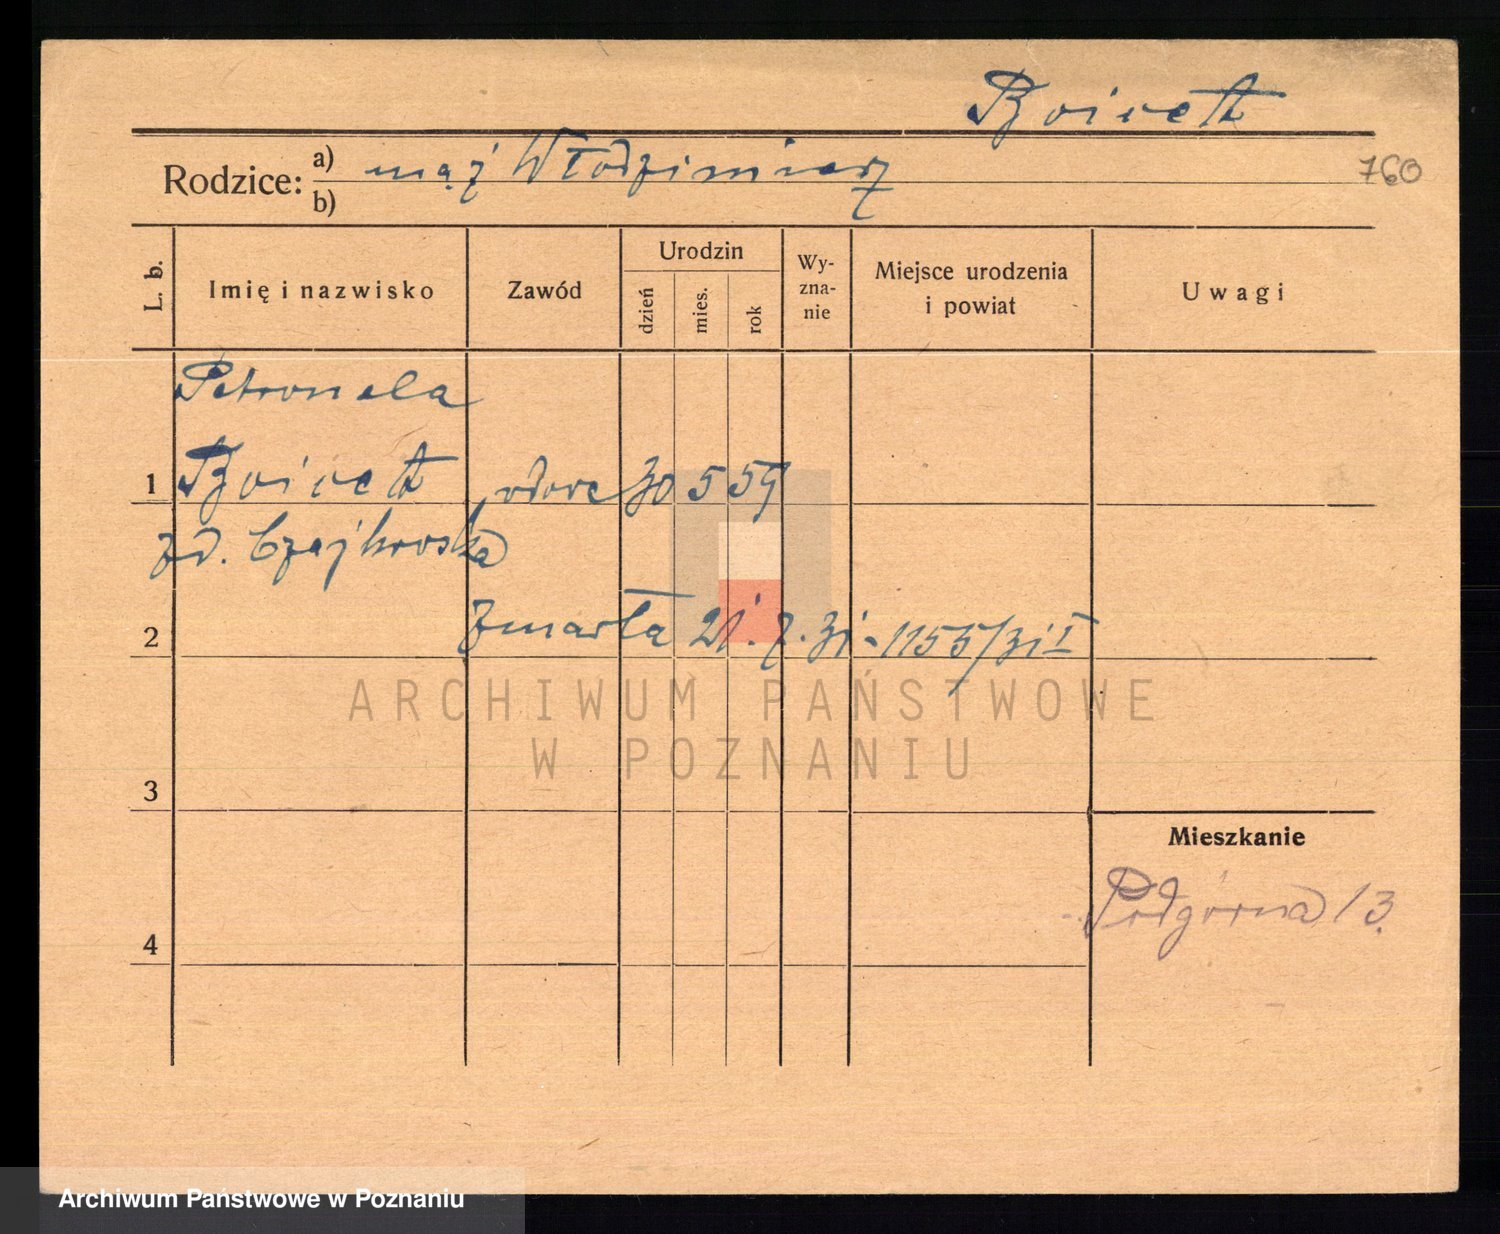 Boicett
Rodzice: a) mąż Włodzimierz
b)
760
L. b. Imię i nazwisko Zawód Urodzin dzień mies. rok Wy-zna-nie Miejsce urodzenia i powiat Uwagi
Petronela
1 wdowa 30 5 59
zd. Czajkowska
2 zmarła 21. 7. 31 - 1155/31 I
3
Mieszkanie
Podgórna 13.
4
ARCHIWUM PAŃSTWOWE
W POZNANIU
Archiwum Państwowe w Poznaniu